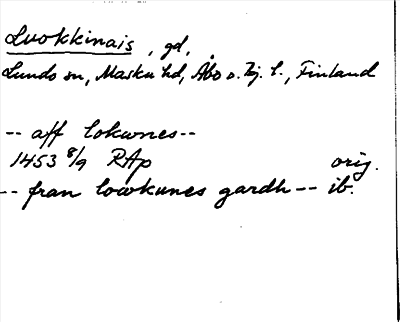 Luokkinais, gd,
Lunds sn, Masku hd, Åbo o. Bj. l., Finland
-- aff lokwnes --
1453 8/9 RAp orig.
-- fran lowkunes gardh -- ib.